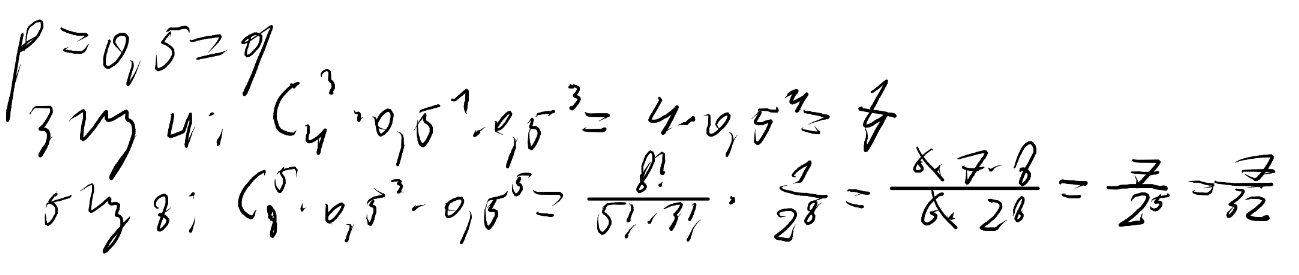 p = 0,5 = q
3 из 4: C₄³ · 0,5¹ · 0,5³ = 4 · 0,5⁴ = 1/4
5 из 8: C₈⁵ · 0,5³ · 0,5⁵ = 8!/(5! · 3!) · 1/2⁸ = (6 · 7 · 8)/(6 · 2⁸) = 7/2⁵ = 7/32